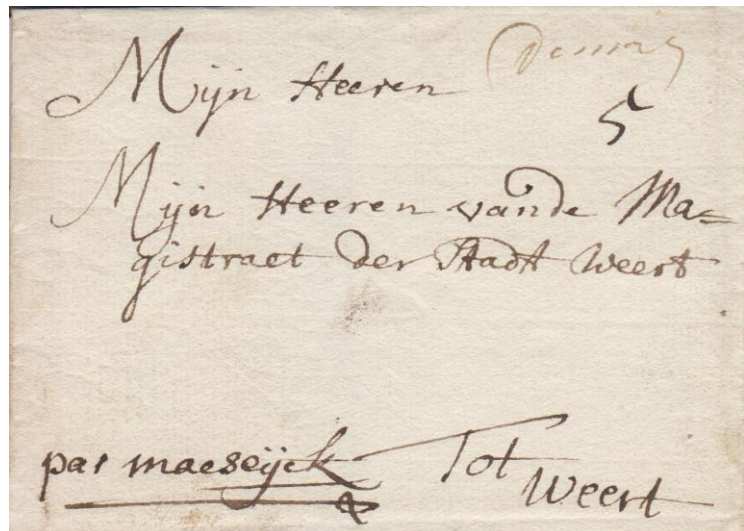 Mijn Heeren
5
Mijn Heeren vande Ma=
gistraet der Stadt Weert
par maeseijck Tot
Weert